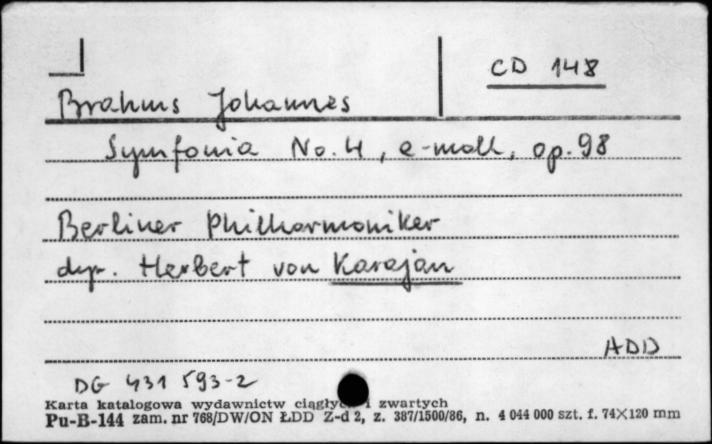 CD 148
Brahms Johannes
Symfonia No. 4, e-moll, op. 98
Berliner Philharmoniker
dyr. Herbert von Karajan
ADD
DG 431 593-2
Karta katalogowa wydawnictw ciągłych i zwartych
Pu-B-144 zam. nr 768/DW/ON ŁDD Z-d 2, z. 387/1500/86, n. 4 044 000 szt. f. 74×120 mm